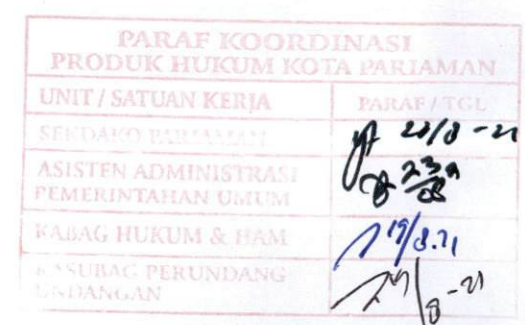 PARAF KOORDINASI
PRODUK HUKUM KOTA PARIAMAN
UNIT / SATUAN KERJA PARAF / TGL
SEKDAKO PARIAMAN
ASISTEN ADMINISTRASI
PEMERINTAHAN UMUM
KABAG HUKUM & HAM 19/8.21
KASUBAG PERUNDANG
UNDANGAN